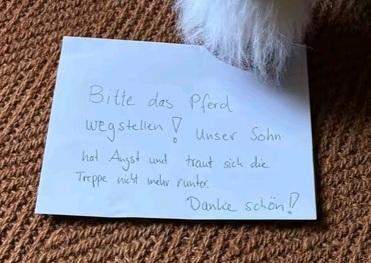 Bitte das Pferd
wegstellen! Unser Sohn
hat Angst und traut sich die
Treppe nicht mehr runter.
Danke schön!